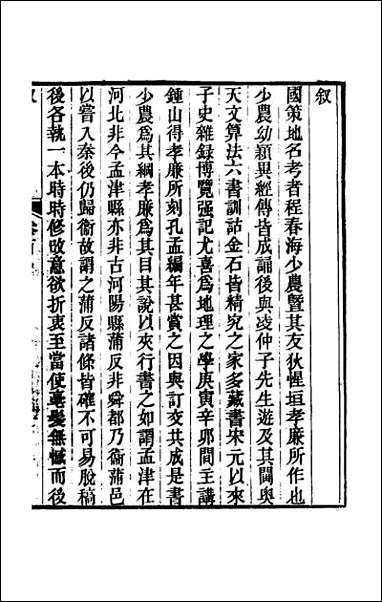 叙
國策地名考者程春海少農暨其友狄惺垣孝廉所作也
少農幼穎異經傳皆成誦後與凌仲子先生遊及其閫奥
天文算法六書訓詁金石皆精究之家多藏書宋元以來
子史雜録博覽强記尤喜爲地理之學庚寅辛夘間主講
鍾山得孝廉所刻孔孟編年甚賞之因與訂交共成是書
少農爲其綱孝廉爲其目其說以夾行書之如謂孟津在
河北非今孟津縣亦非古河陽縣蒲反非舜都乃衞蒲邑
以嘗入秦後仍歸衞故謂之蒲反諸條皆確不可易脫稿
後各執一本時時修改意欲折衷至當使毫髮無憾而後